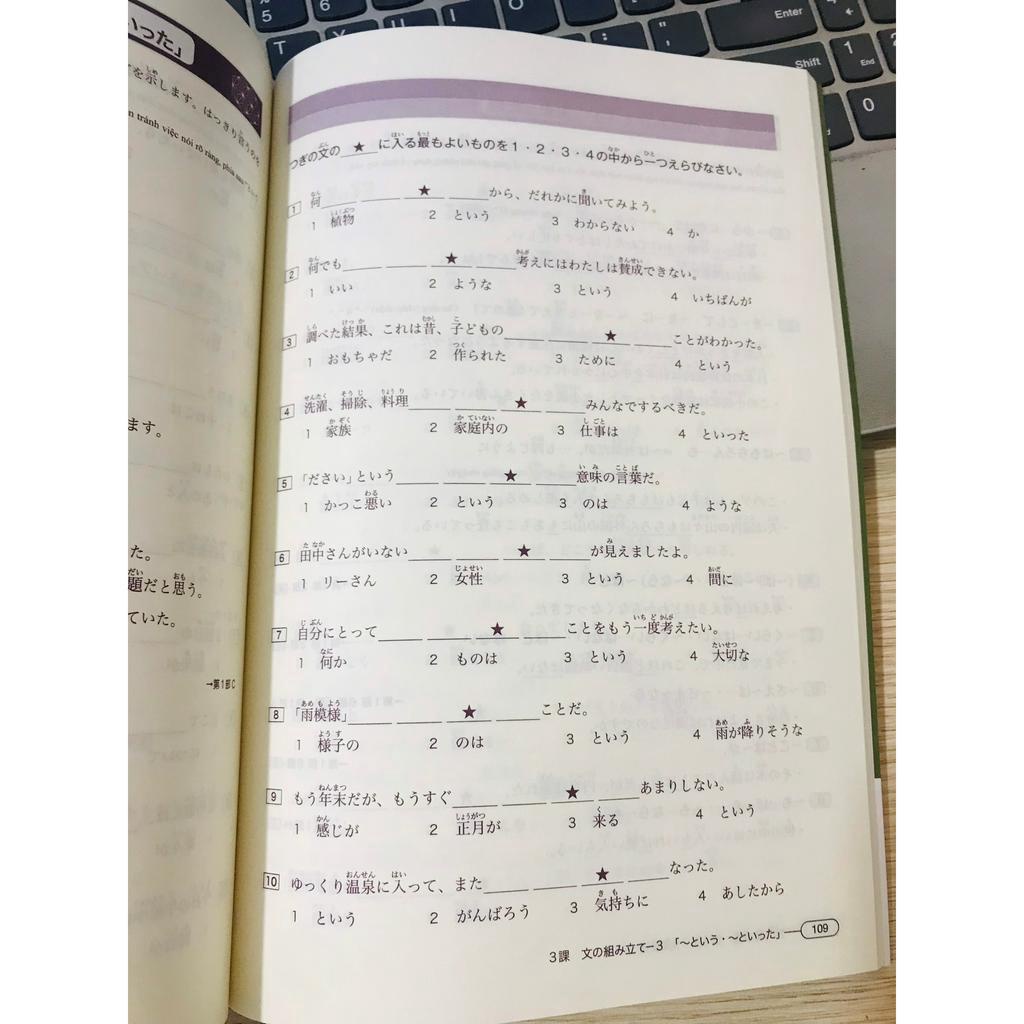 いった」
を示します。はっきり言うのを
n tránh việc nói rõ ràng, phía sau
ます。
た。
題だと思う。
ていた。
→第1部C
つぎの文の ★ に入る最もよいものを1・2・3・4の中から一つえらびなさい。
1 何____ ____ ★ ____から、だれかに聞いてみよう。
1 植物 2 という 3 わからない 4 か
2 何でも____ ____ ★ ____考えにはわたしは賛成できない。
1 いい 2 ような 3 という 4 いちばんが
3 調べた結果、これは昔、子どもの____ ____ ★ ____ことがわかった。
1 おもちゃだ 2 作られた 3 ために 4 という
4 洗濯、掃除、料理____ ____ ★ ____みんなでするべきだ。
1 家族 2 家庭内の 3 仕事は 4 といった
5 「ださい」という____ ____ ★ ____意味の言葉だ。
1 かっこ悪い 2 という 3 のは 4 ような
6 田中さんがいない____ ____ ★ ____が見えましたよ。
1 リーさん 2 女性 3 という 4 間に
7 自分にとって____ ____ ★ ____ことをもう一度考えたい。
1 何か 2 ものは 3 という 4 大切な
8 「雨模様」____ ____ ★ ____ことだ。
1 様子の 2 のは 3 という 4 雨が降りそうな
9 もう年末だが、もうすぐ____ ____ ★ ____あまりしない。
1 感じが 2 正月が 3 来る 4 という
10 ゆっくり温泉に入って、また____ ____ ★ ____なった。
1 という 2 がんばろう 3 気持ちに 4 あしたから
3課 文の組み立て－3 「～という・～といった」 109
5
6
T
Y
Enter
Shift
1
End
0